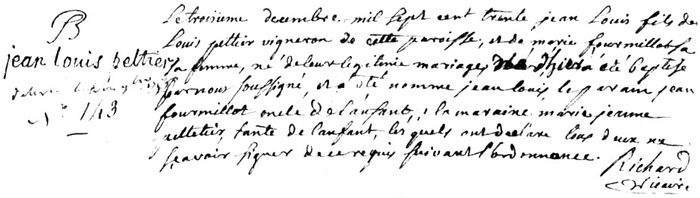 B
jean louis peltier
N° 143
Le troisieme decembre mil sept cent trente jean Louis fils de
Louis peltier vigneron de cette paroisse, et de marie fourmillot sa
sa femme, né de leur legitime mariage, a été baptisé
par nous soussigné, et a été nommé jean louis, le parain jean
fourmillot oncle de l'anfant, la maraine marie jeanne
pelletier tante de l'anfant, les quels ont declaré tous deux ne
sçavoir signer de ce requis suivant l'ordonnance.
Richard
Vicaire